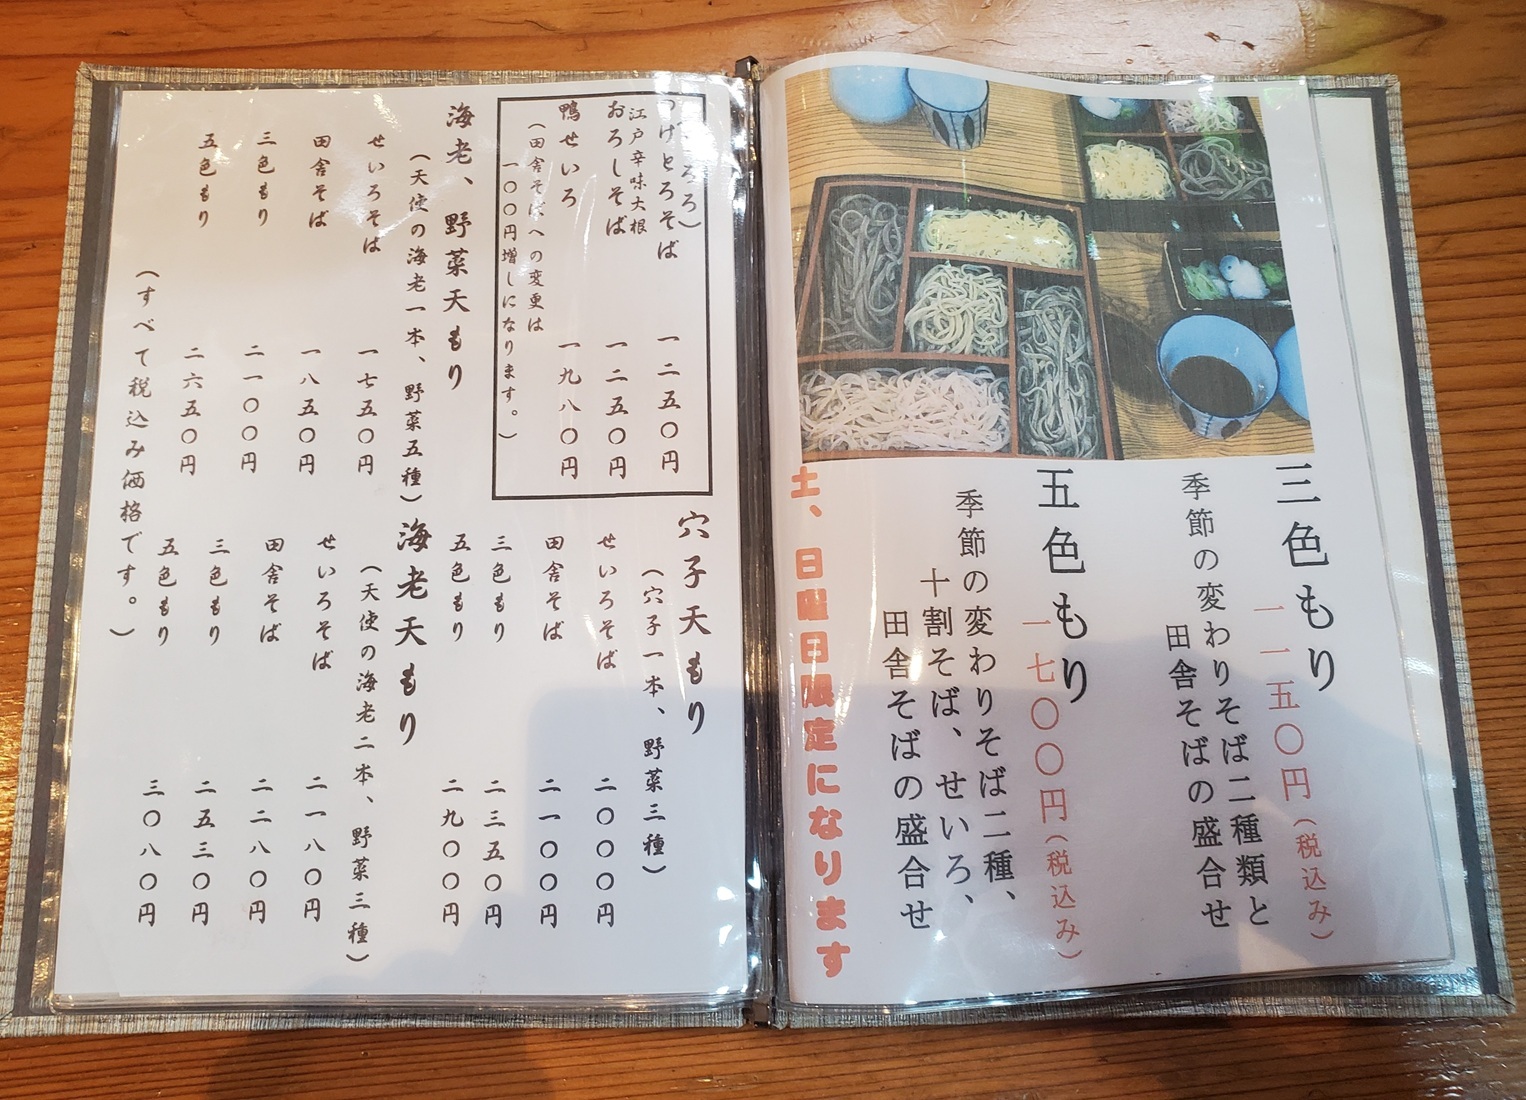 三色もり
一一五〇円（税込み）
季節の変わりそば二種類と
田舎そばの盛合せ
五色もり
一七〇〇円（税込み）
季節の変わりそば二種、
十割そば、せいろ、
田舎そばの盛合せ
土、日曜日限定になります
つけとろそば 一二五〇円
江戸辛味大根
おろしそば 一二五〇円
鴨せいろ 一九八〇円
（田舎そばへの変更は
一〇〇円増しになります。）
海老、野菜天もり
（天使の海老一本、野菜五種）
せいろそば 一七五〇円
田舎そば 一八五〇円
三色もり 二一〇〇円
五色もり 二六五〇円
穴子天もり
（穴子一本、野菜三種）
せいろそば 二〇〇〇円
田舎そば 二一〇〇円
三色もり 二三五〇円
五色もり 二九〇〇円
海老天もり
（天使の海老二本、野菜三種）
せいろそば 二一八〇円
田舎そば 二二八〇円
三色もり 二五三〇円
五色もり 三〇八〇円
（すべて税込み価格です。）